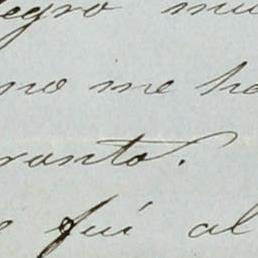 legro mu
no me ha
ronto.
e fui al